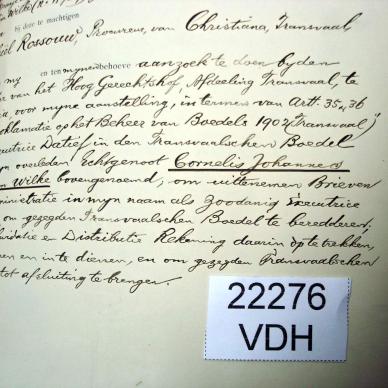 bij deze te machtigen
Rossouw, Procureur, van Christiana, Transvaal
my
en ten mynen behoeve aanzoek te doen by den
van het Hoog Gerechtshof Afdeeling Transvaal, te
voor myne aanstelling, in termen van Artt. 35, 36
oklamatie op het Beheer van Boedels 1902 (Transvaal)
cutrice Datief in den Transvaalschen Boedel
overleden Echtgenoot Cornelis Johannes
Wilke bovengenoemd; om uittenemen Brieven
ministratie in myn naam als zoodanig Executrice
om gezegden Transvaalschen Boedel te beredderen;
uidatie en Distributie Rekening daarin op te trekken,
en en in te dienen, en om gezegden Transvaalschen
tot afsluiting te brengen.
22276
VDH